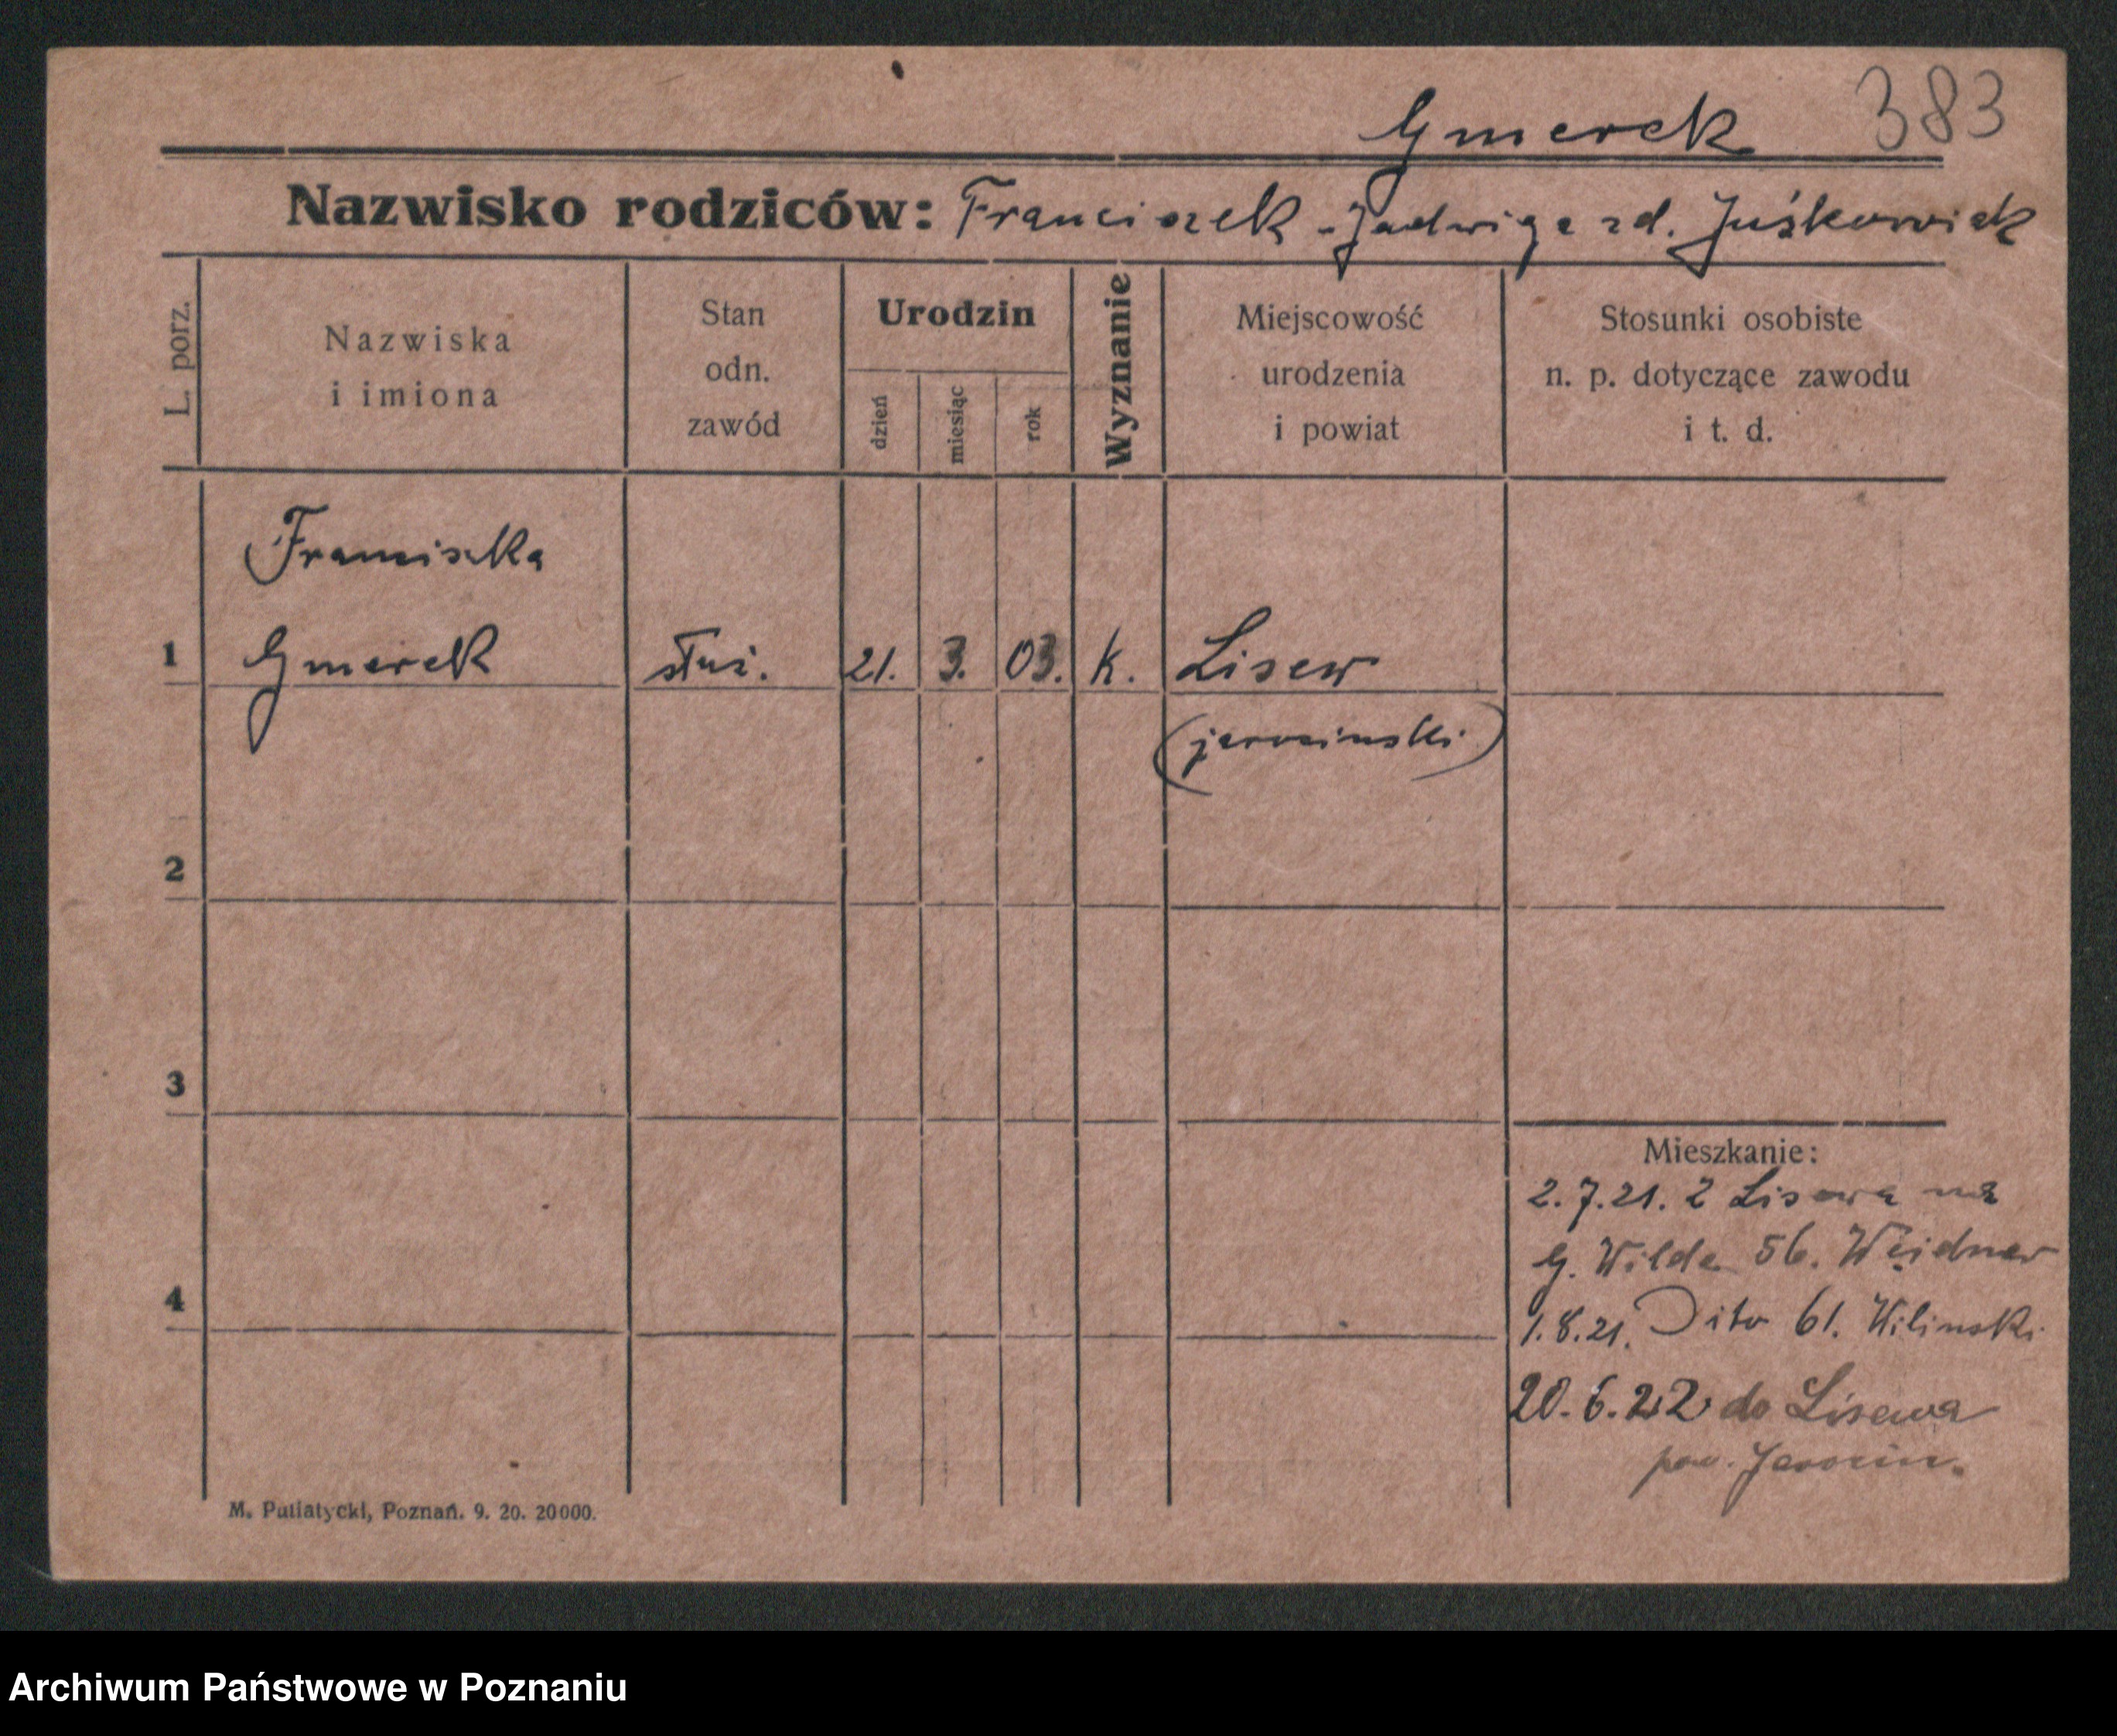 383
Gmerek
Nazwisko rodziców: Franciszek - Jadwiga zd. Juśkowiak
L. porz.
Nazwiska
i imiona
Stan
odn.
zawód
Urodzin
dzień
miesiąc
rok
Wyznanie
Miejscowość
urodzenia
i powiat
Stosunki osobiste
n. p. dotyczące zawodu
i t. d.
Franciszka
1 Gmerek służ. 21. 3. 03. k. Lisew
(jarocinski)
2
3
4
Mieszkanie:
2.7.21. z Lisewa na
G. Wilda 56. Weidner
1.8.21. Dito 61. Wilinski
20.6.22 do Lisewa
pow. Jarocin.
M. Putiatycki, Poznań. 9. 20. 20000.
Archiwum Państwowe w Poznaniu